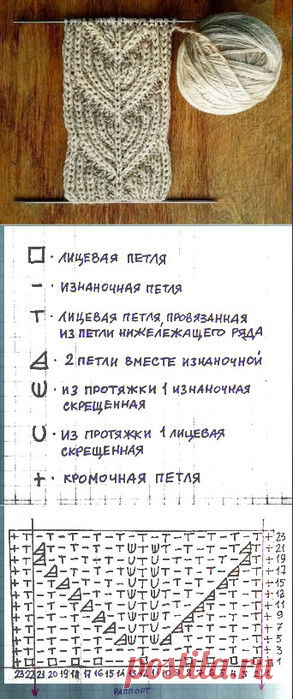 □ · ЛИЦЕВАЯ ПЕТЛЯ
- · ИЗНАНОЧНАЯ ПЕТЛЯ
Т · ЛИЦЕВАЯ ПЕТЛЯ, ПРОВЯЗАННАЯ
ИЗ ПЕТЛИ НИЖЕЛЕЖАЩЕГО РЯДА
· 2 ПЕТЛИ ВМЕСТЕ ИЗНАНОЧНОЙ
· ИЗ ПРОТЯЖКИ 1 ИЗНАНОЧНАЯ
СКРЕЩЕННАЯ
U · ИЗ ПРОТЯЖКИ 1 ЛИЦЕВАЯ
СКРЕЩЕННАЯ
+ · КРОМОЧНАЯ ПЕТЛЯ
23
21
19
17
15
13
11
9
7
5
3
1
23 22 21 20 19 18 17 16 15 14 13 12 11 10 9 8
РАППОРТ
postila.ru